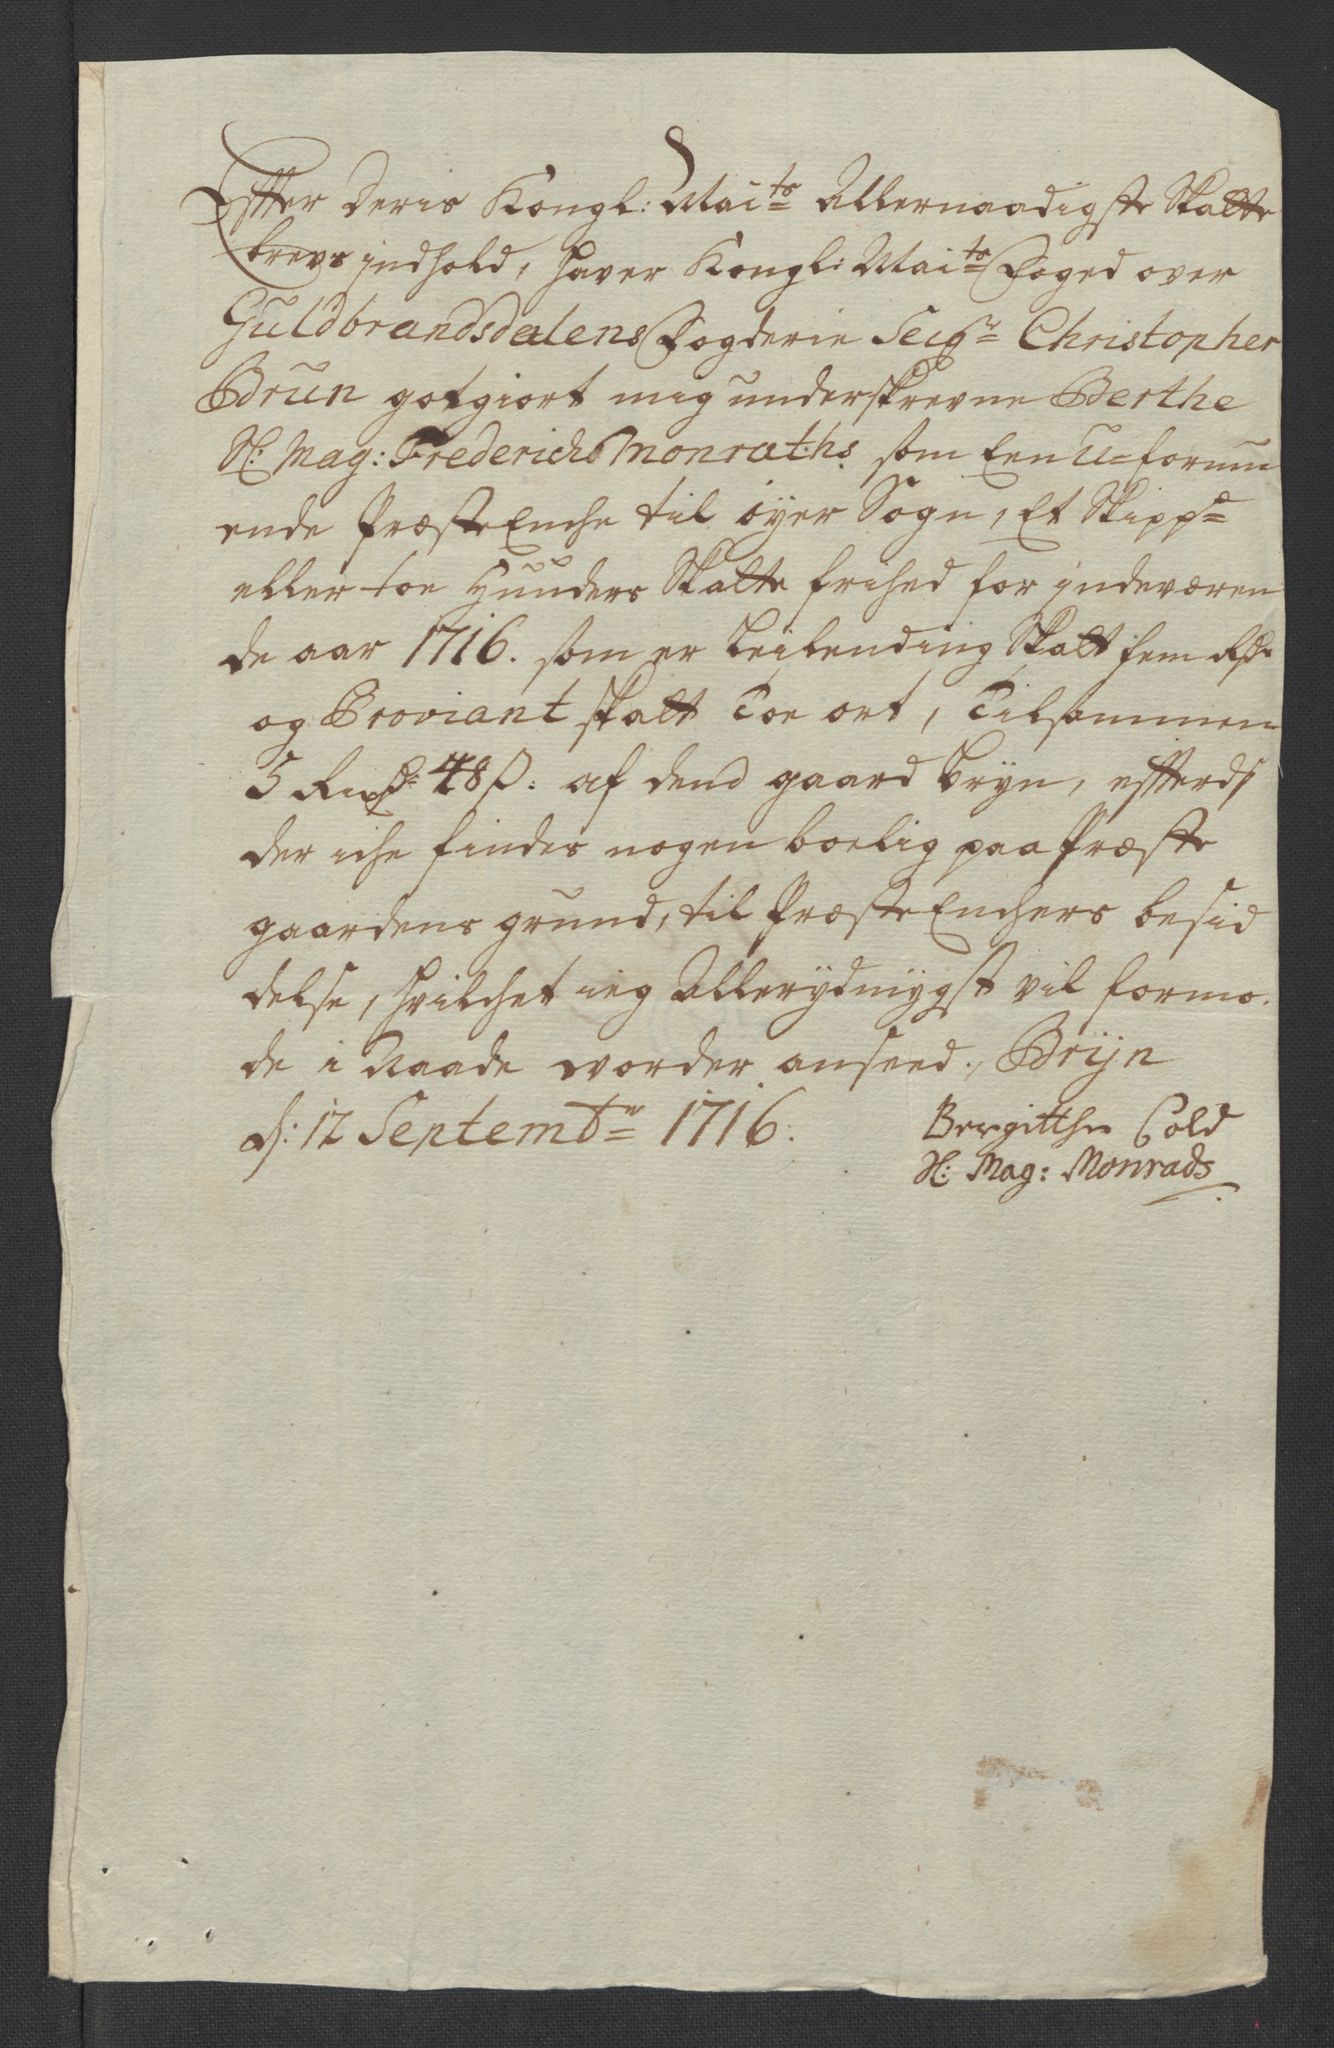 Effter Deris Kongl: Mai:ts Allernaadigste Skatte
brevs jndhold, haver Kongl: Mai:ts Foged over
Guldbrandsdalens Fogderie Seigr Christopher
Brun gotgiort mig underskrevne Berthe
Sl: Mag: Frederichs Monraths som Een U-formu
ende Præste Enche til öyer Sogn, Et Skippd
eller toe Hunders Skatte frihed for jndeværen
de aar 1716. som er Leilending Skatt fem Rdr
og Proviant skatt Toe ort, Tilsammen
5 Rixdr: 48 ß: af dend gaard Bryn, effterdj
der iche findes nogen boelig paa Præste
gaardens grund, til Præste Enchers besid
delse, hvilchet ieg Allerydmygst vil formo.
de i Naade worder anseed., Brÿn
d: 12 Septembr 1716.
Bergitthe Cold
Sl: Mag: Monrads